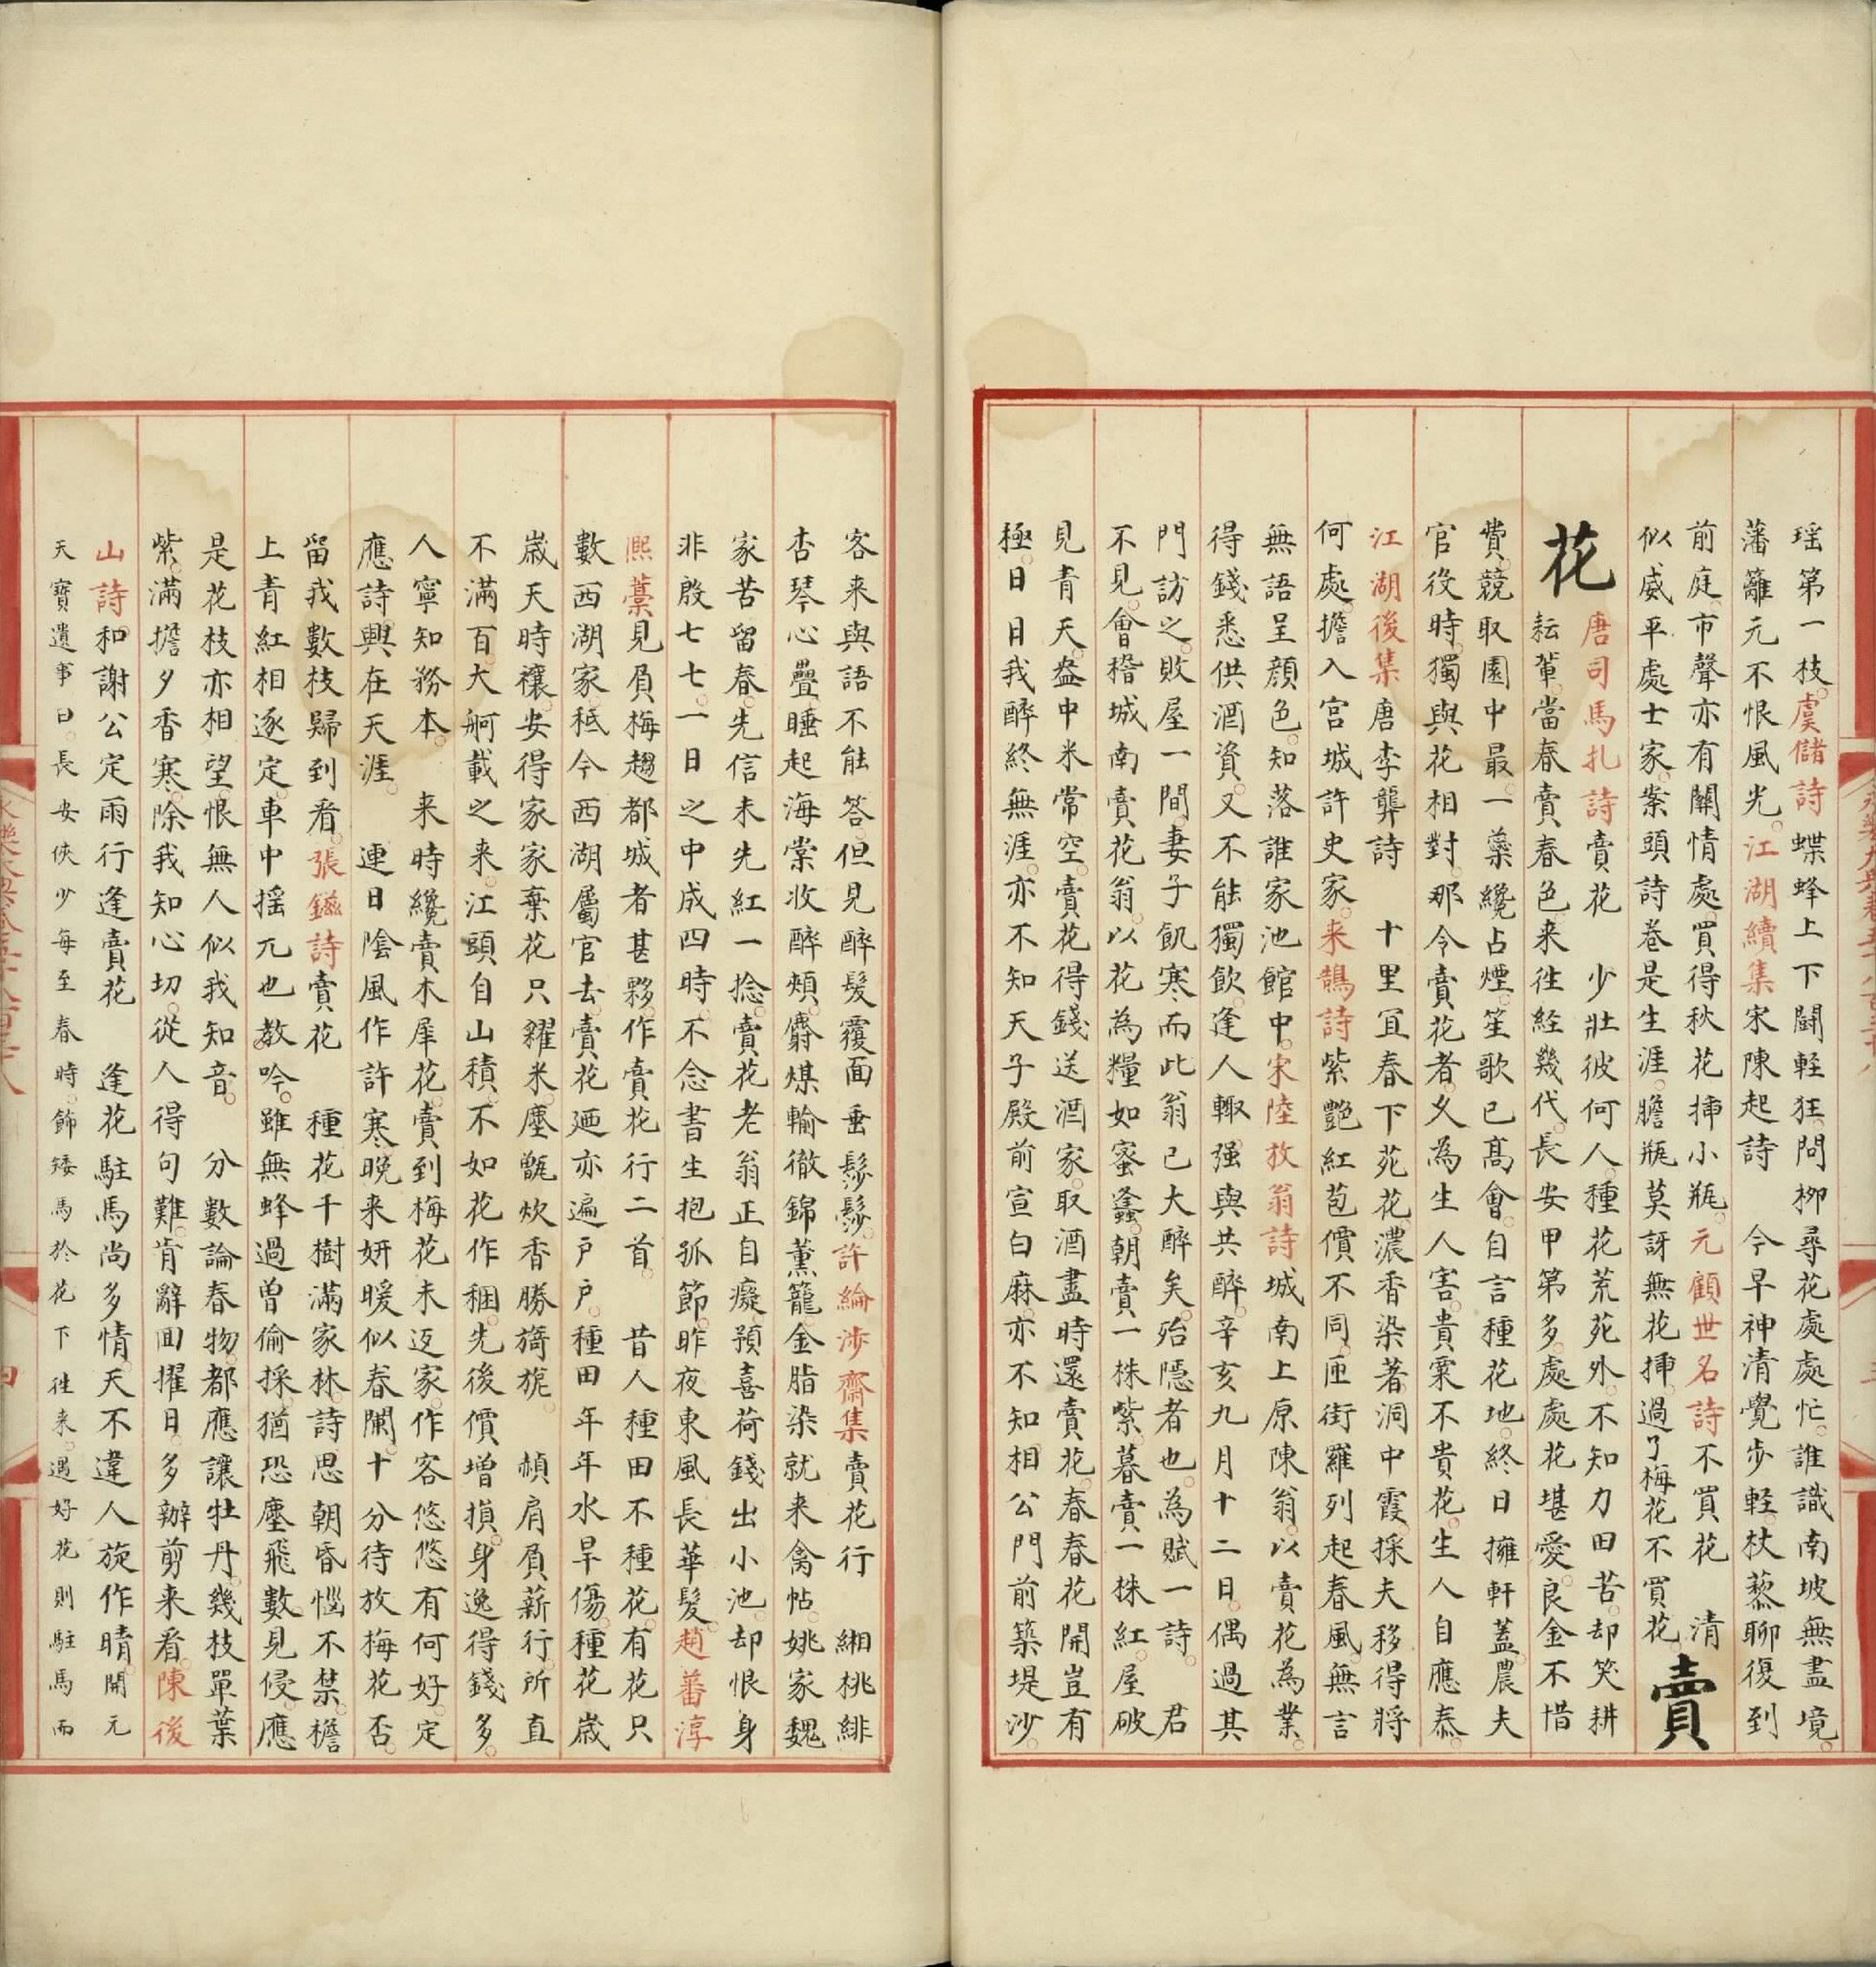 瑶第一枝虞儲詩蝶蜂上下闘軽狂問栁尋花處處忙誰識南坡無盡境
藩籬元不恨風光江湖續集宋陳起詩　今早神清覺歩軽杖藜聊復到
前庭市聲亦有闗情處買得秋花揷小瓶元顧世名詩不買花　清
似戚平處士家案頭詩卷是生涯膽瓶莫訝無花揷過了梅花不買花
賣
花
唐司馬扎詩賣花　少壯彼何人種花荒苑外不知力田苦却笑耕
耘軰當春賣春色来徃経幾代長安甲第多處處花堪愛良金不惜
費競取園中最一蘂纔占煙笙歌已髙會自言種花地終日擁軒蓋農夫
官役時獨與花相對那令賣花者乂為生人害貴粟不貴花生人自應泰
江湖後集唐李龏詩　十里冝春下苑花濃香染著洞中霞採夫移得將
何處擔入宮城許史家来鵠詩紫艷紅苞價不同匝街羅列起春風無言
無語呈顔色知落誰家池館中宋陸放翁詩城南上原陳翁以賣花為業
得錢悉供酒資又不能獨飲逢人輙强與共醉辛亥九月十二日偶過其
門訪之敗屋一間妻子飢寒而此翁已大醉矣殆隱者也為賦一詩　君
不見會稽城南賣花翁以花為糧如蜜蠭朝賣一株紫暮賣一株紅屋破
見青天盎中米常空賣花得錢送酒家取酒盡時還賣花春春花開豈有
極日日我醉終無涯亦不知天子殿前宣白麻亦不知相公門前築堤沙
客来與語不能答但見醉髮覆面垂鬖鬖許綸涉齋集賣花行　緗桃緋
杏琴心疊睡起海棠收醉頰麝煤輸徹錦薰籠金脂染就来禽帖姚家魏
家苦留春先信未先紅一捻賣花老翁正自癡預喜荷錢出小池却恨身
非殷七七一日之中成四時不念書生抱孤節昨夜東風長華髮趙蕃淳
熈藁見負梅趨都城者甚夥作賣花行二首　昔人種田不種花有花只
數西湖家秪今西湖屬官去賣花廼亦遍戸戸種田年年水旱傷種花歳
歳天時禳安得家家棄花只糴米塵甑炊香勝旖旎　頳肩負薪行所直
不滿百大舸載之来江頭自山積不如花作稛先後價增損身逸得錢多
人寧知務本　来時纔賣木犀花賣到梅花未返家作客悠悠有何好定
應詩興在天涯　連日陰風作許寒晩来妍暖似春闌十分待放梅花否
留我數枝歸到看張鎡詩賣花　種花千樹滿家林詩思朝昏惱不禁檐
上青紅相逐定車中揺兀也教吟雖無蜂過曽偷採猶恐塵飛數見侵應
是花枝亦相望恨無人似我知音　分數論春物都應讓牡丹幾枝單葉
紫滿擔夕香寒除我知心切從人得句難肯辭囬擢日多辦剪来看陳後
山詩和謝公定雨行逢賣花　逢花駐馬尚多情天不違人旋作晴開元
天寳遺事曰長安俠少每至春時飾矮馬於花下徃来遇好花則駐馬而